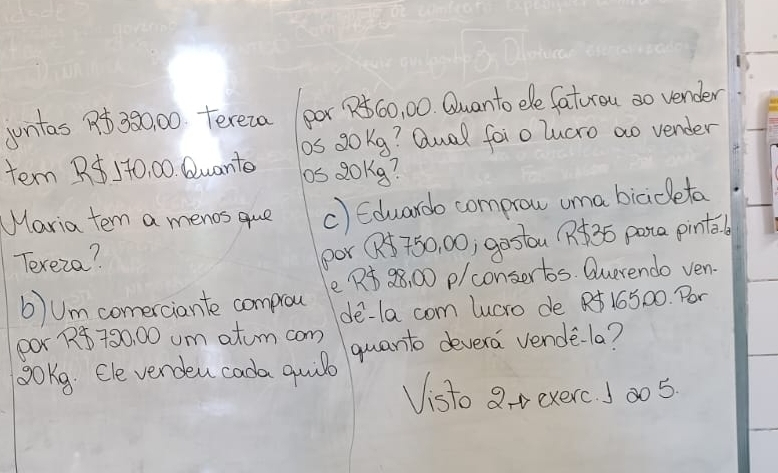 juntas R$ 320,00. Tereza
tem R$ 170,00. Quanto
Maria tem a menos que
Tereza?
b) Um comerciante comprou
por R$ 720,00 um atum com
20Kg. Ele vendeu cada quilo
por R$60,00. Quanto ele faturou ao vender
os 20Kg? Qual foi o lucro ao vender
os 20Kg?
c) Eduardo comprou uma bicicleta
por R$ 750,00; gastou R$35 para pintá-la
e R$ 28,00 p/consertos. Querendo ven-
dê-la com lucro de R$ 165,00. Por
quanto deverá vendê-la?
Visto 2 → exerc. 1 ao 5.